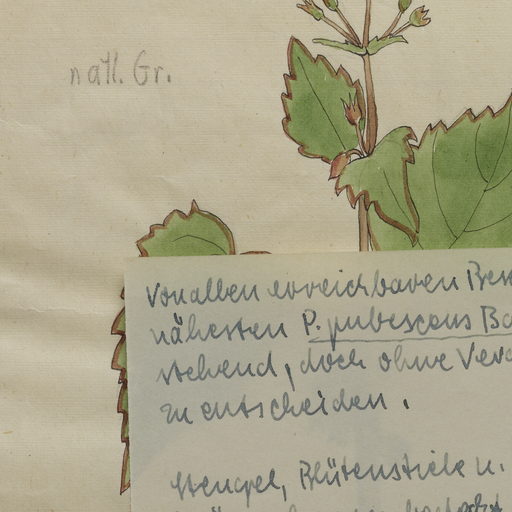 natl. Gr.
Von allen erreichbaren Bes
nähesten P. pubescens Ba
stehend, doch ohne Ver
zu entscheiden.
Stengel, Blütenstiele u.